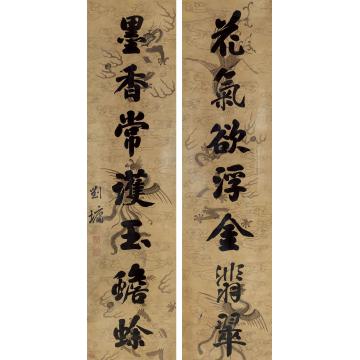 花氣欲浮金翡翠
墨香常護玉蟾蜍
劉墉